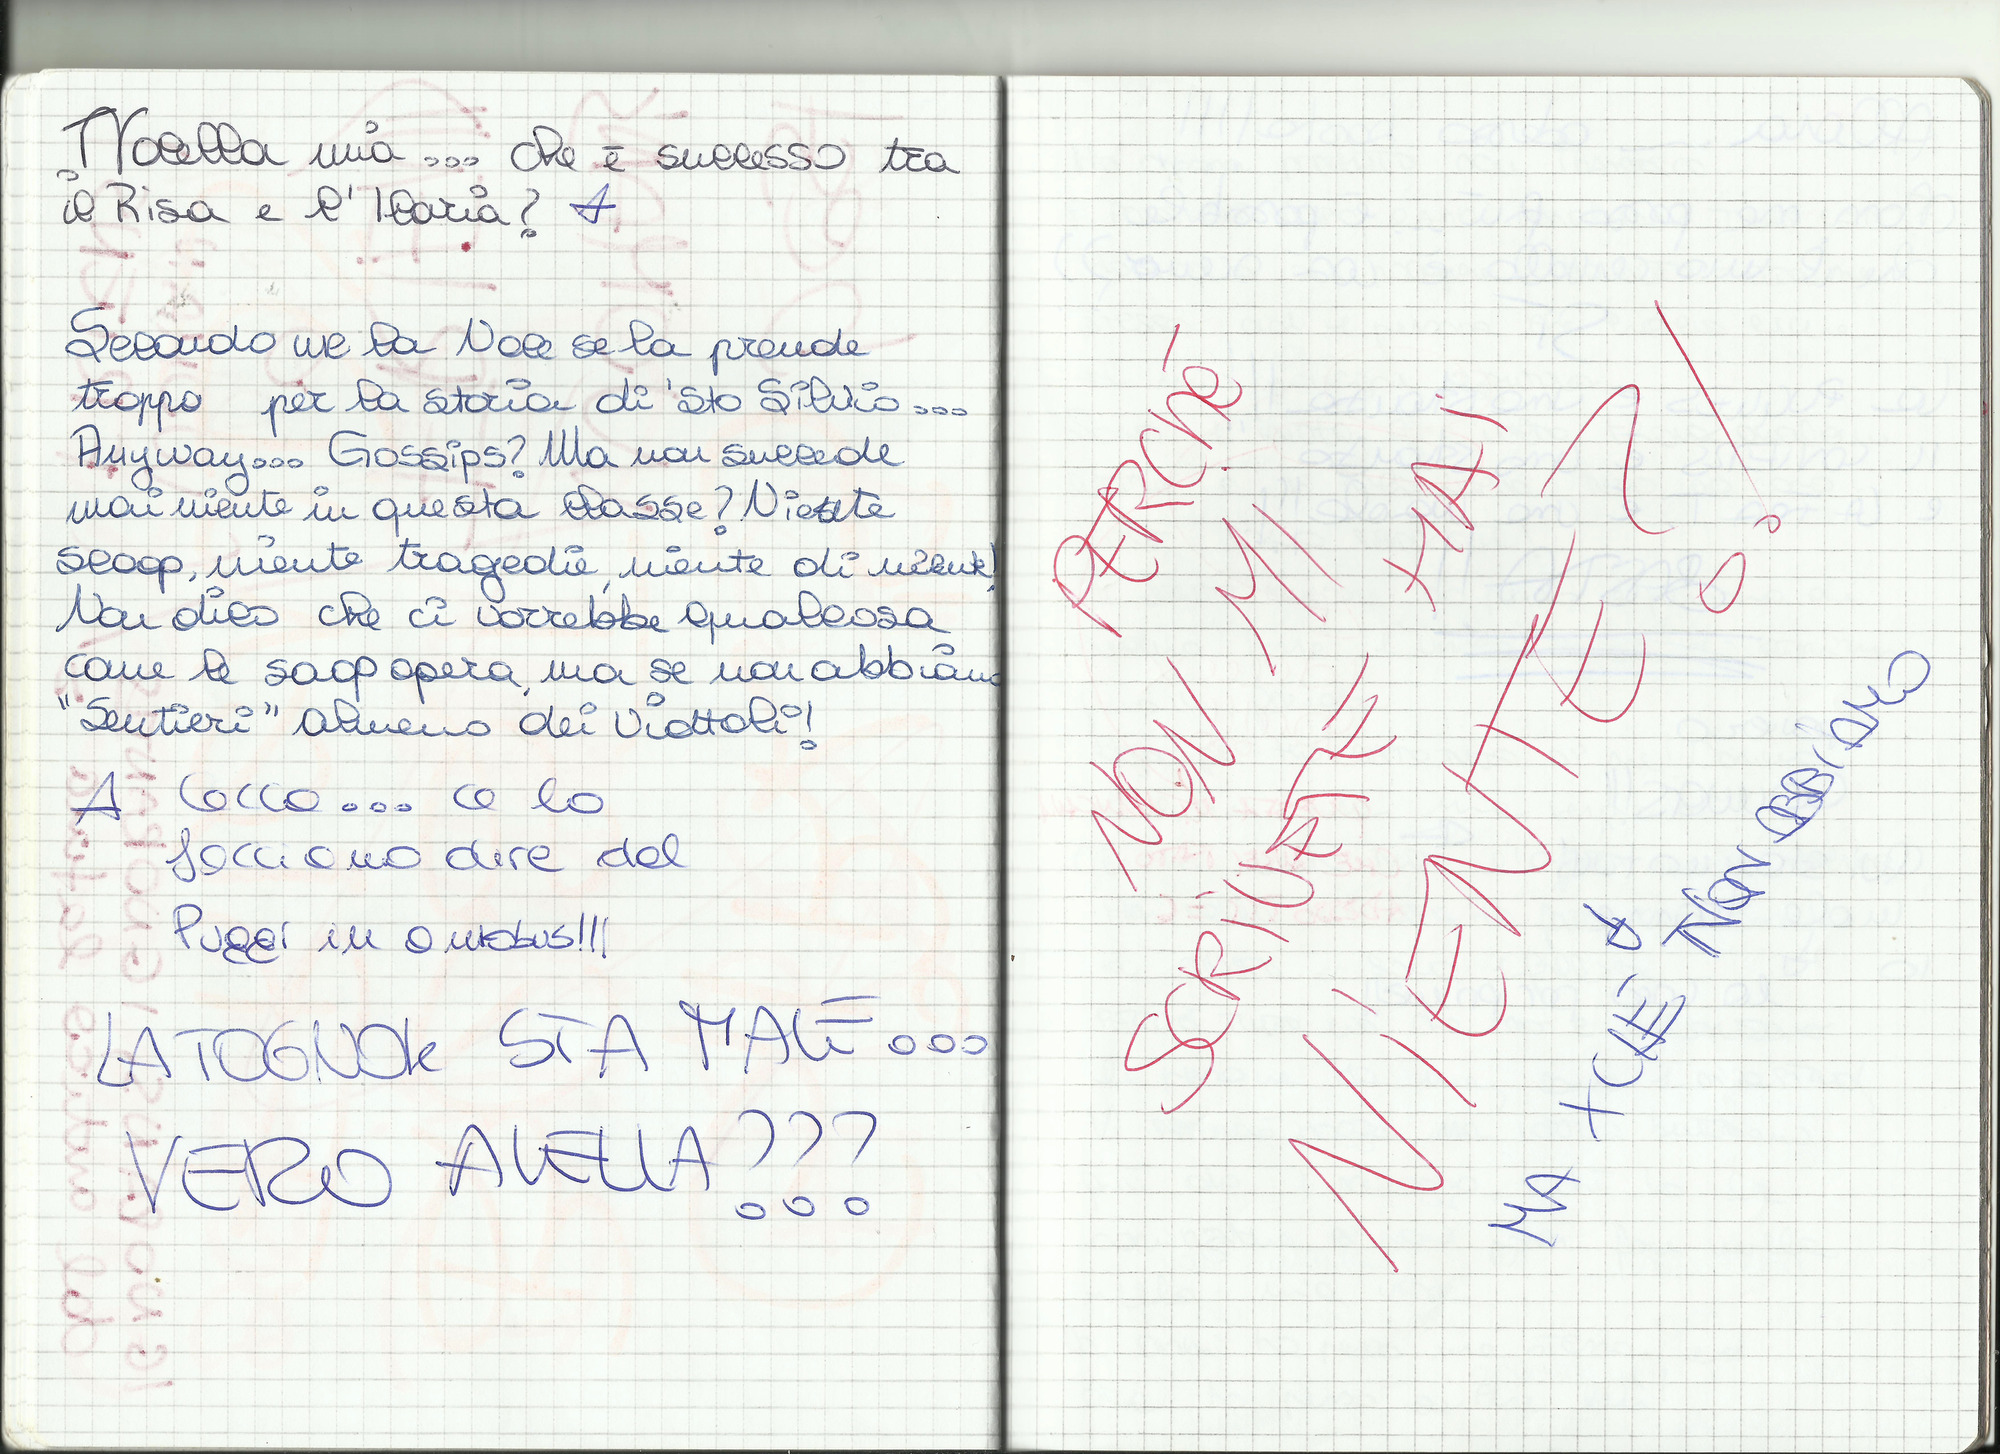 Nocella mia... che è successo tra
il Risa e l'Ilaria? A
Secondo me la Noce se la prende
troppo per la storia di 'sto Silvio...
Anyway... Gossips? Ma non succede
mai niente in questa classe? Niente
scoop, niente tragedie, niente di nient!
Non dico che ci vorrebbe qualcosa
come le soap opera, ma se non abbiamo
"Sentieri" almeno dei viottoli!
A Cocco... ce lo
facciamo dire dal
Puggi in omobus!!!
LA TOGNOLE STA MALE...
VERO AVELLA???
PERCHÉ
NON MI
SCRIVETE MAI
NIENTE?!
MA + CHÉ NON ABBIAMO